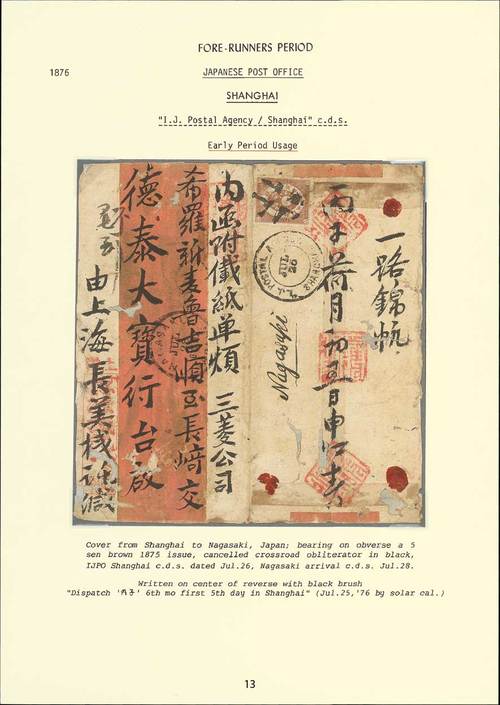 FORE-RUNNERS PERIOD
1876
JAPANESE POST OFFICE
SHANGHAI
"I.J. Postal Agency / Shanghai" c.d.s.
Early Period Usage
一路錦帆
丙子荷月初五日申江書
JUL
26
Nagasaki
內函附儎紙单煩 三菱公司
希羅新麦魯吉順至長崎交
德泰大寶行台啟
由上海長美棧託緘
Cover from Shanghai to Nagasaki, Japan; bearing on obverse a 5
sen brown 1875 issue, cancelled crossroad obliterator in black,
IJPO Shanghai c.d.s. dated Jul.26, Nagasaki arrival c.d.s. Jul.28.
Written on center of reverse with black brush
"Dispatch '丙子' 6th mo first 5th day in Shanghai" (Jul.25,'76 by solar cal.)
13